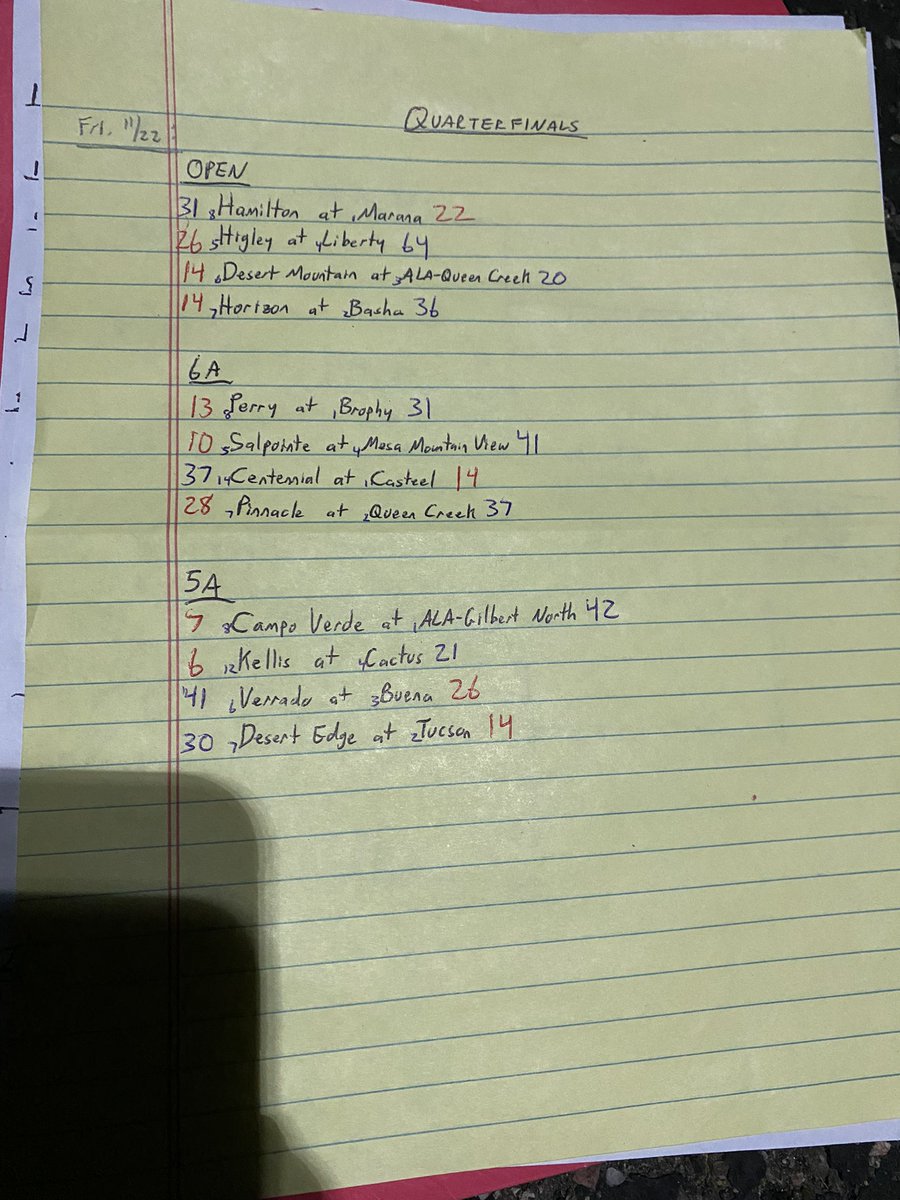 QUARTERFINALS
Fri. 11/22:
OPEN
31 8Hamilton at 1Marana 22
26 5Higley at 4Liberty 64
14 6Desert Mountain at 3ALA-Queen Creek 20
14 7Horizon at 2Basha 36
6A
13 8Perry at 1Brophy 31
10 5Salpointe at 4Mesa Mountain View 41
37 14Centennial at Casteel 14
28 7Pinnacle at 2Queen Creek 37
5A
7 8Campo Verde at 1ALA-Gilbert North 42
6 12Kellis at 4Cactus 21
41 6Verrado at 3Buena 26
30 7Desert Edge at 2Tucson 14